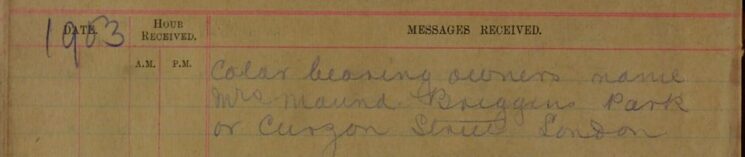 1903
DATE. HOUR RECEIVED. MESSAGES RECEIVED.
A.M. P.M.
Colar bearing owners name
Mrs Maund Briggins Park
or Curzon Street London